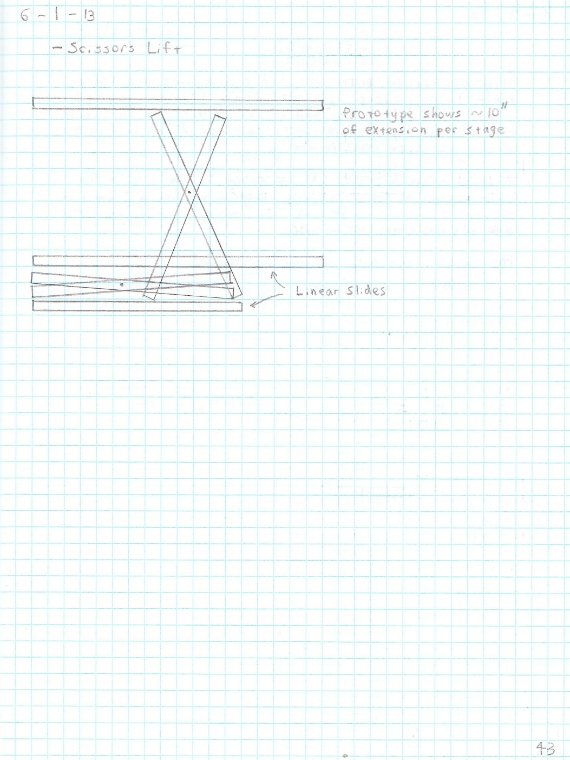 6-1-13
- Scissors Lift
Prototype shows ~10"
of extension per stage
Linear Slides
43